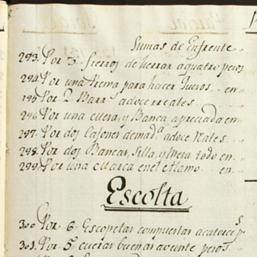 Sumas de Enfrente
293. Por 3. fierros de herrar a quatro pesos
294. Por una Pierna para hacer Quesos en
295. Por 2. Barr.s a doce reales
296. Por una cuera, y Banca apreciada en
297. Por dos Cajones de mad.a a doce R.ales
298. Por dos Bancas, Silla, y Mesa todo en
299. Por una en el Alamo en
Escolta
300. Por 6. Escopetas compuestas a catorce p.s
301. Por 5. cueras buenas a veinte pesos